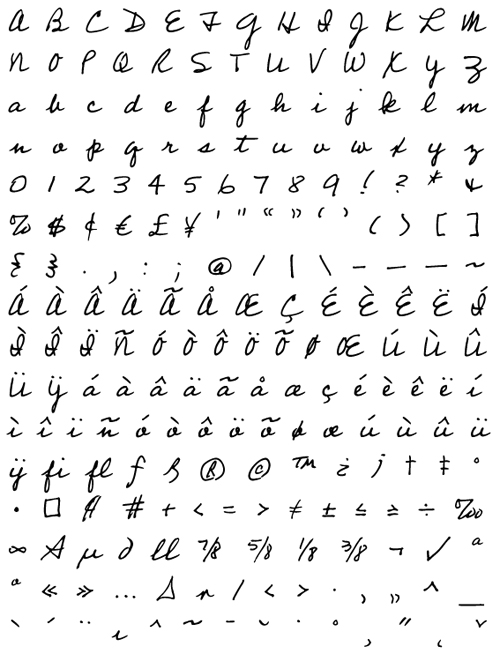 A B C D E F G H I J K L M
N O P Q R S T U V W X Y Z
a b c d e f g h i j k l m
n o p q r s t u v w x y z
0 1 2 3 4 5 6 7 8 9 ! ? *
% $ ¢ € £ ¥ ' " “ ” ( ) [ ]
{ } . , : ; @ / | \ – — — ~
Á À Â Ä Ã Å Æ Ç É È Ê Ë Í
Ì Î Ï Ñ Ó Ò Ô Ö Õ Ø Œ Ú Ù Û
Ü Ÿ á à â ä ã å æ ç é è ê ë í
ì î ï ñ ó ò ô ö õ ø œ ú ù û ü
ÿ fi fl ƒ ß ® © ™ ¿ ¡ † ‡ °
• □ # + < = > ≠ ± ≤ ≥ ÷ ‰
∞ µ ∂ 7/8 5/8 1/8 3/8 ¬ √ ª
º « » … ∆ / < > · ‚ „ ^ _
` ´ ¨ ı ˆ ˜ ¯ ˘ ˙ ˚ ¸ ˝ ˛ ˇ